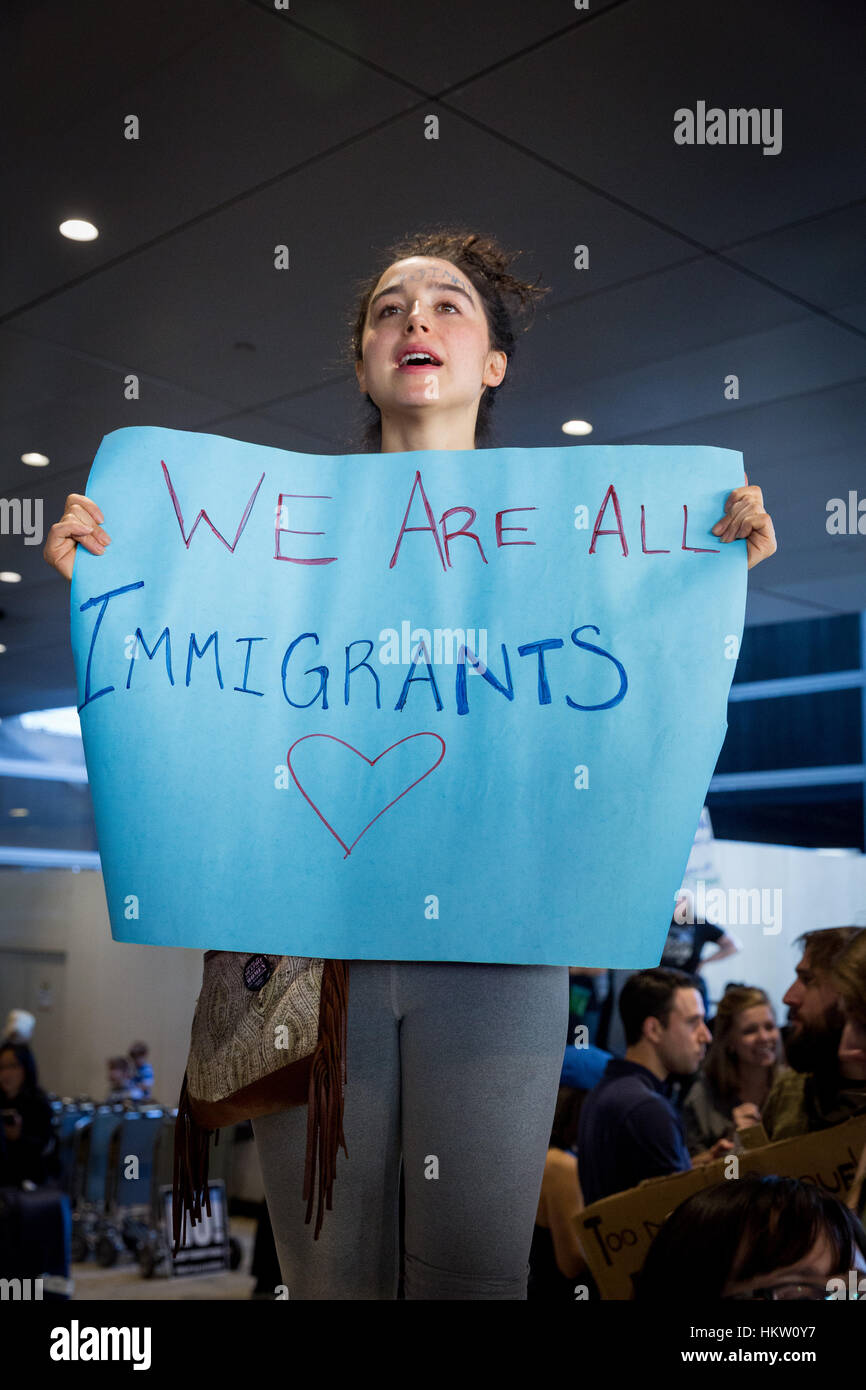 We Are All
Immigrants
Too
alamy
Image ID: HKW0Y7
www.alamy.com